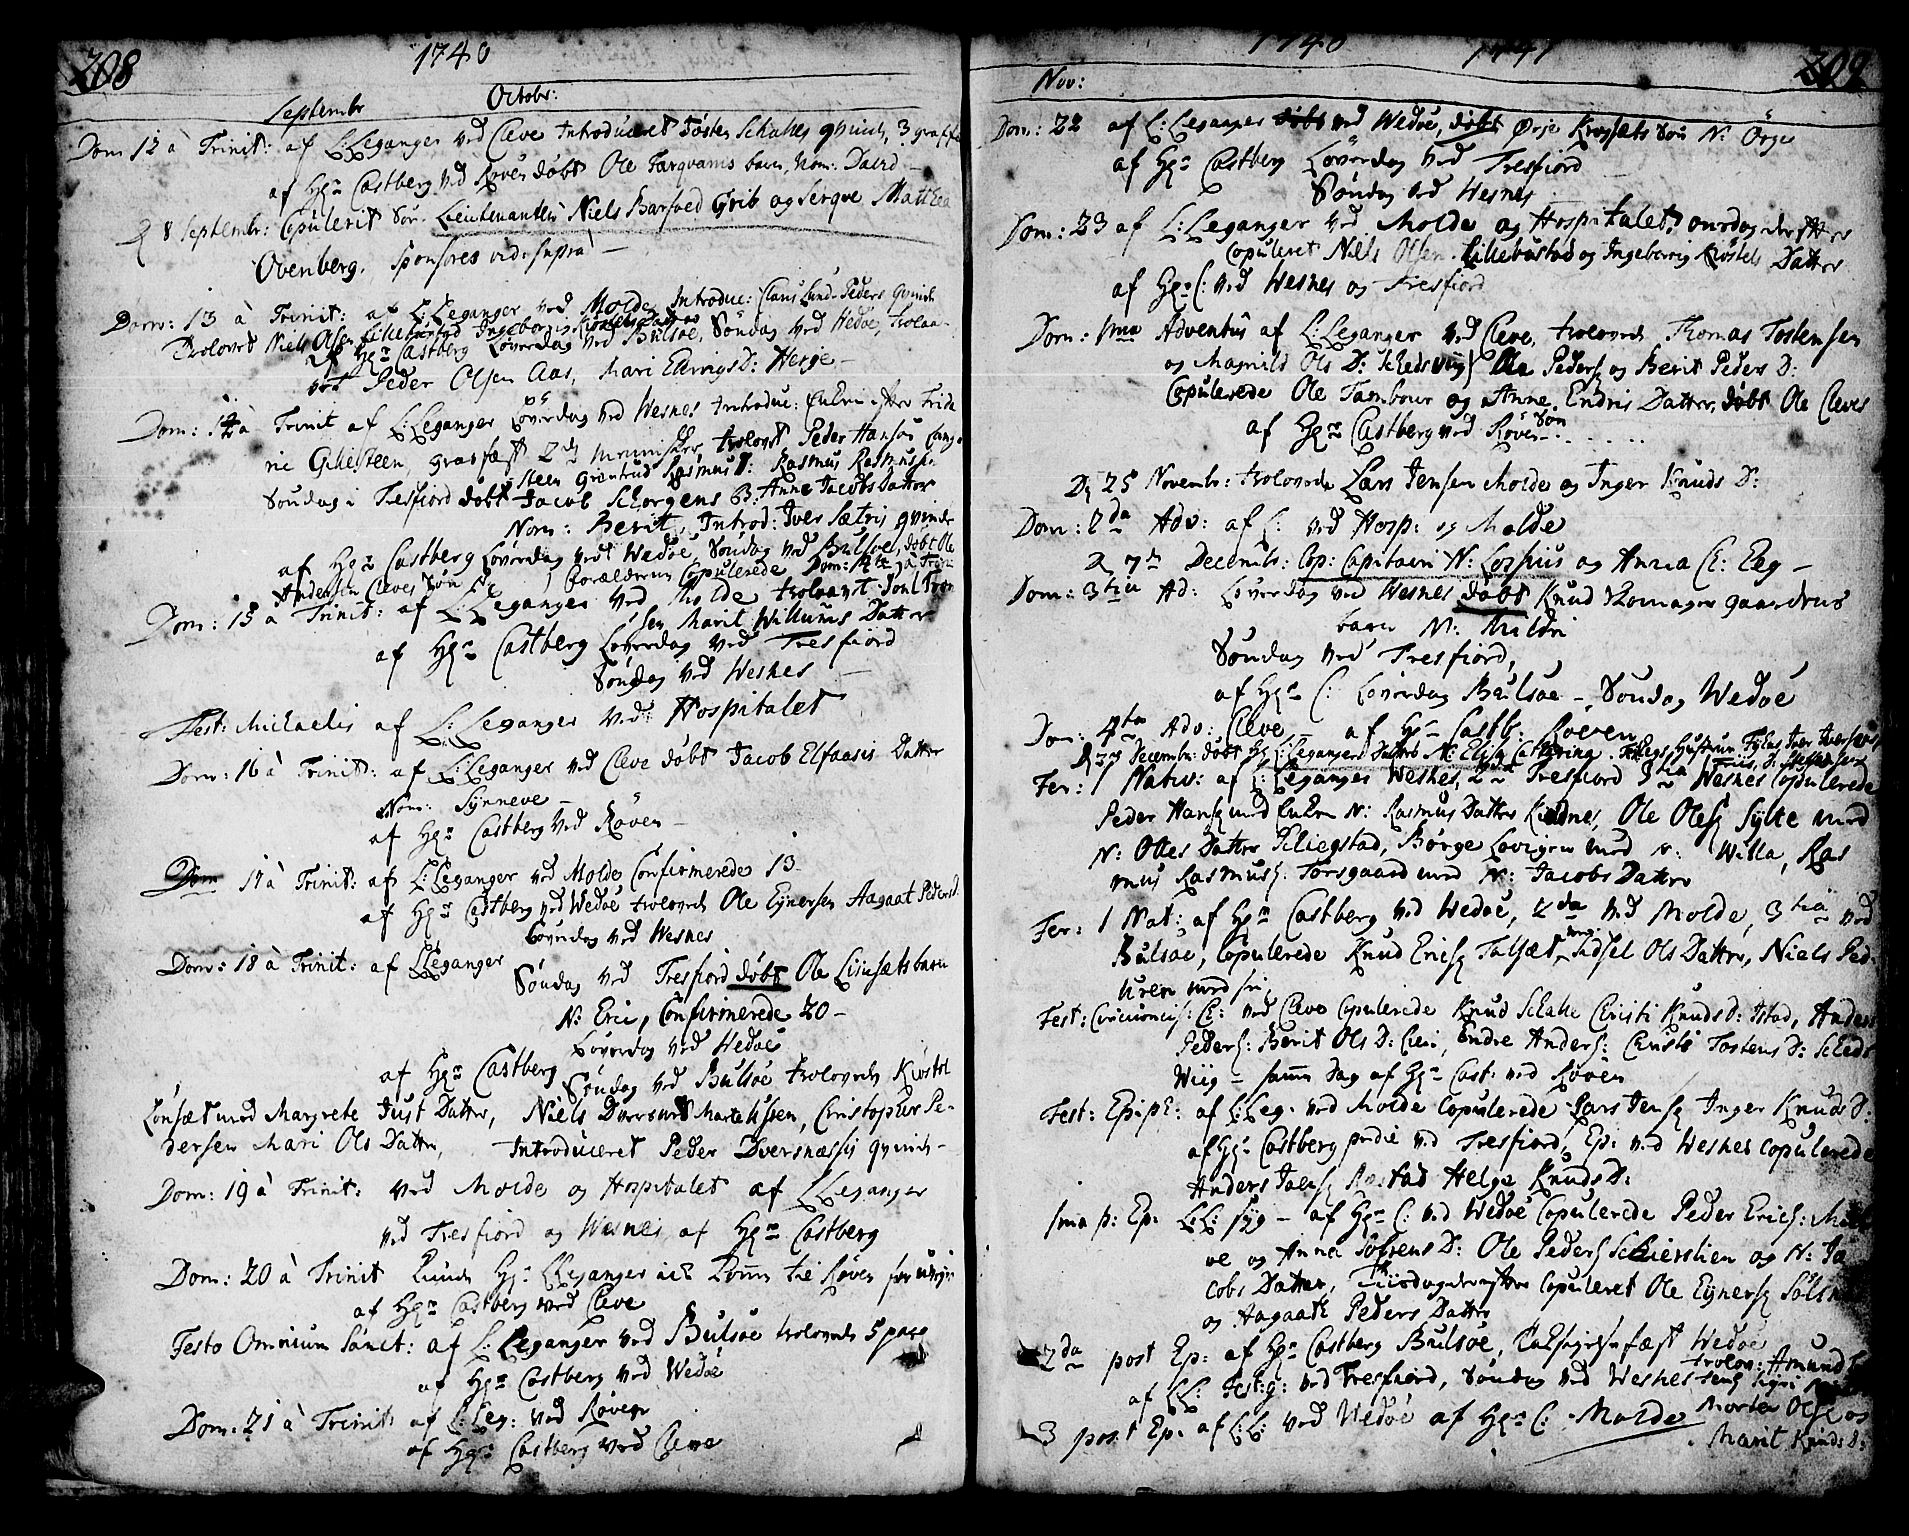 208
1740
Septembr
Octobr:
Dom 12 à Trinit: af L: Leganger ved Cleve Introduceret Tosten Schakes qvinde, 3 graffæ
af Hr Castberg ved Røven døbt Ole Farqvams barn, Nom: David –
D 8 Septembr: Copulerit Sr. Lieutenanten Niels Barsved Grib og Serqve Matthea
Ovenberg. Sponsores vide supra –
Dom: 13 à Trinit: af L: Leganger ved Molde, Introduc: Claus Lund Peders qvinde
Trolovet Niels Olsen Lillebustad Ingebor Kiøstels Datter
af Hr Castberg Løverdag ved Bulsøe, Søndag ved Wedøe, trolov
Peder Olsen Aas, Mari Ellevigs D: Herje –
Dom: 14 à Trinit af L: Leganger Løverdag ved Wesnes Introduc: Enken efter Fride
ric Ghesteen, grafæst 2de mennisker, trolovet Peder Hansøs
Steen Giertrud Rasmus D: Rasmus Rasmuss
Søndag i Tresfiord døbt Jacob Schorgens B. Anne Jacobs Datter
Nom: Berit, Introd: Iver Sætris qvinde
af Hr Castberg Løverdag ved Wedøe, Søndag ved Bulsøe, døbt Ole
Andersen Cleves Søn Forælderne Copulerede Dom: 14 à Trin:
Dom: 15 à Trinit: af L: Leganger ved Molde trolovet Joul Iver
sen Marit Willums Datter
af Hr Castberg Løverdag ved Tresfiord
Søndag ved Wesnes –
Fest: Michaelis af L: Leganger ved Hospitalet
Dom: 16 à Trinit: af L: Leganger ved Cleve døbt Jacob Elfaasis Datter
Nom: Synneve –
af Hr Castberg ved Røven –
Dom 17 à Trinit: af L: Leganger ved Molde Confirmerede 13
af Hr Castberg ved Wedøe trolovede Ole Ejnersen Aagaat Peders D.
Løverdag ved Wesnes
Dom: 18 à Trinit: af LLeganger
Søndag ved Tresfiord døbt Ole Lisesæts barn
N: Eric, Confirmerede 20 –
Løverdag ved Wedøe
af Hr Castberg
Søndag ved Bulsøe trolovede Kiøstel
Lønsæt med Margrete Just Datter, Niels Marte Christopher Pe-
dersen Mari Ols Datter, Introduceret Peder Dversnæssis qvinde –
Dom: 19 à Trinit: ved Molde og Hospitalet af LLeganger
ved Tresfiord og Wesnes af Hr Castberg
Dom: 20 à Trinit Hr LLeganger Komme til Røven for
af Hr Castberg ved Cleve
Festo Omnium Sanct: af L: Leganger ved Bulsøe trolovede 5 par
af Hr Castberg ved Wedøe
Dom: 21 à Trinit: af L: Leg: ved Røven
af Hr Castberg ved Cleve
1740
1741
209
Nov:
Dom: 22 af L: Leganger døbt ved Wedøe, døbt Ørje Krogsæts Søn N: Örge
af Hr Castberg Løverdag ved Tresfiord
Søndag ved Wesnes
Dom: 23 af L: Leganger ved Molde og Hospitalet, onsdag derefter
Copuleret Niels Olsen Lillebustad og Ingeborrig Kiøstels Datter
af Hr C: ved Wesnes og Tresfiord
Dom: 1ma Adventus af L: Leganger ved Cleve, trolovede Thomas Tostensen
og Magnild Ols D: Schedsviig Ole Peders og Berit Peders D:
Copulerede Ole Tambour og Anne Endris Datter, døbt Ole Cleves
Søn
af Hr Castberg ved Røven .....
D 25 Novembr: trolovede Lars Jensen Molde og Inger Knuds D:
Dom: 2da Adv: af L: ved Hosp: og Molde
D 7de Decembr: Cop: Capitain N: Lossius og Anna C: Eeg –
Dom: 3tia Ad: Løverdag ved Wesnes døbt Knud Romager gaardens
barn N: Mildri
Søndag ved Tresfiord,
af Hr C: Løverdag Bulsøe –, Søndag Wedøe
Dom: 4ta Adv: Cleve – af Hr Castb: Røven
D Decembr: døbt Hr L: Legangers Datter N: Elisa Cathring.
Fer: 1 Nativ: af L: Leganger Wesnes, 2da Tresfiord 3tia Wesnes Copulerede
Peder Hans med Enken N: Rasmus Datter Kiidnes, Ole Oles Sylte med
N: Olles Datter Schiegstad, Børge Lovigen med N: Willa, Ras
mus Rasmus: Torsgaard med N: Jacobs Datter
Fer: 1 Nat: af Hr Castberg ved Wedøe, 2da ved Molde, 3tia ved
Bulsøe, Copulerede Knud Erics Talsæt, Sidsel Ols Datter, Niels Ped.
uren med sin
Fest: Circumcis: L: ved Cleve Copulerede Knud Schake Christi Knuds D: Istad, Anders
Peders: Berit Ols D: Endre Anders: Christi Tostens D: Scheds
Wiig – samme Dag af Hr Cast: ved Røven
Fest: Epiph: af L: Leg. ved Molde Copulerede Lars Jens Inger Knuds D:
af Hr Castberg pridie ved Tresfiord, Ep: ved Wesnes Copulerede
Anders Joels Rostad Helge Knuds D:
1ma p: Ep. L:L: syg – af Hr C: ved Wedøe Copulerede Peder Erics:
ve og Anna Sofrens D: Ole Peders Schierslien og N: Ja
cobs Datter, Tiisdag derefter Copuleret Ole Ejners
og Aagaath Peders Datter
2da post Ep: af Hr Castberg Bulsøe, Wedøe
af LL: ved Tresfiord, Søndag ved Wesnes trolov: Amund
3 post Ep. af L:L: ved Wedøe af Hr C: Molde Morten Olse og
Marit Knuds D: